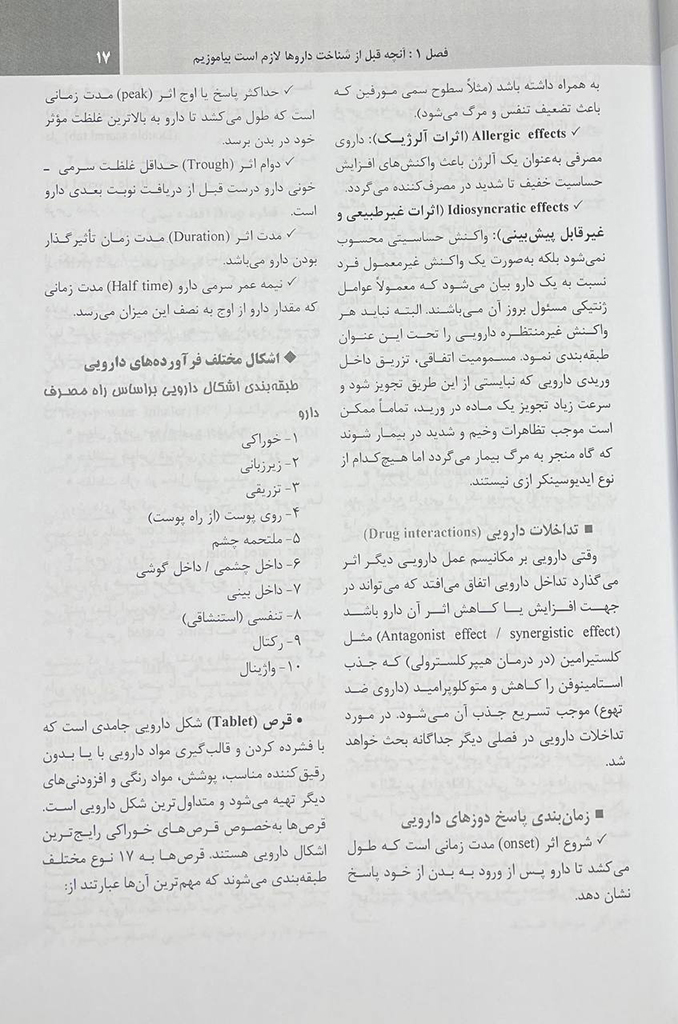 فصل ۱: آنچه قبل از شناخت داروها لازم است بیاموزیم
۱۷
به همراه داشته باشد (مثلاً سطوح سمی مورفین که
باعث تضعیف تنفس و مرگ می‌شود).
✓ Allergic effects (اثرات آلرژیک): داروی
مصرفی به‌عنوان یک آلرژن باعث واکنش‌های افزایش
حساسیت خفیف تا شدید در مصرف‌کننده می‌گردد.
✓ Idiosyncratic effects (اثرات غیرطبیعی و
غیرقابل پیش‌بینی): واکنش حساسیتی محسوب
نمی‌شود بلکه به‌صورت یک واکنش غیرمعمول فرد
نسبت به یک دارو بیان می‌شود که معمولاً عوامل
ژنتیکی مسئول بروز آن می‌باشند. البته نباید هر
واکنش غیرمنتظره دارویی را تحت این عنوان
طبقه‌بندی نمود. مسمومیت اتفاقی، تزریق داخل
وریدی دارویی که نبایستی از این طریق تجویز شود و
سرعت زیاد تجویز یک ماده در ورید، تماماً ممکن
است موجب تظاهرات وخیم و شدید در بیمار شوند
که گاه منجر به مرگ بیمار می‌گردد اما هیچ‌کدام از
نوع ایدیوسینکر ازی نیستند.
■ تداخلات دارویی (Drug interactions)
وقتی دارویی بر مکانیسم عمل دارویی دیگر اثر
می‌گذارد تداخل دارویی اتفاق می‌افتد که می‌تواند در
جهت افزایش یا کاهش اثر آن دارو باشد
(Antagonist effect / synergistic effect) مثل
کلستیرامین (در درمان هیپرکلسترولی) که جذب
استامینوفن را کاهش و متوکلوپرامید (داروی ضد
تهوع) موجب تسریع جذب آن می‌شود. در مورد
تداخلات دارویی در فصلی دیگر جداگانه بحث خواهد
شد.
■ زمان‌بندی پاسخ دوزهای دارویی
✓ شروع اثر (onset) مدت زمانی است که طول
می‌کشد تا دارو پس از ورود به بدن از خود پاسخ
نشان دهد.
✓ حداکثر پاسخ یا اوج اثر (peak) مدت زمانی
است که طول می‌کشد تا دارو به بالاترین غلظت مؤثر
خود در بدن برسد.
✓ دوام اثر (Trough) حداقل غلظت سرمی -
خونی دارو درست قبل از دریافت نوبت بعدی دارو
است.
✓ مدت اثر (Duration) مدت زمان تأثیرگذار
بودن دارو می‌باشد.
✓ نیمه عمر سرمی دارو (Half time) مدت زمانی
که مقدار دارو از اوج به نصف این میزان می‌رسد.
◆ اشکال مختلف فرآورده‌های دارویی
طبقه‌بندی اشکال دارویی براساس راه مصرف
دارو
۱- خوراکی
۲- زیرزبانی
۳- تزریقی
۴- روی پوست (از راه پوست)
۵- ملتحمه چشم
۶- داخل چشمی / داخل گوشی
۷- داخل بینی
۸- تنفسی (استنشاقی)
۹- رکتال
۱۰- واژینال
• قرص (Tablet) شکل دارویی جامدی است که
با فشرده کردن و قالب‌گیری مواد دارویی با یا بدون
رقیق‌کننده مناسب، پوشش، مواد رنگی و افزودنی‌های
دیگر تهیه می‌شود و متداول‌ترین شکل دارویی است.
قرص‌ها به‌خصوص قرص‌های خوراکی رایج‌ترین
اشکال دارویی هستند. قرص‌ها به ۱۷ نوع مختلف
طبقه‌بندی می‌شوند که مهم‌ترین آن‌ها عبارتند از: